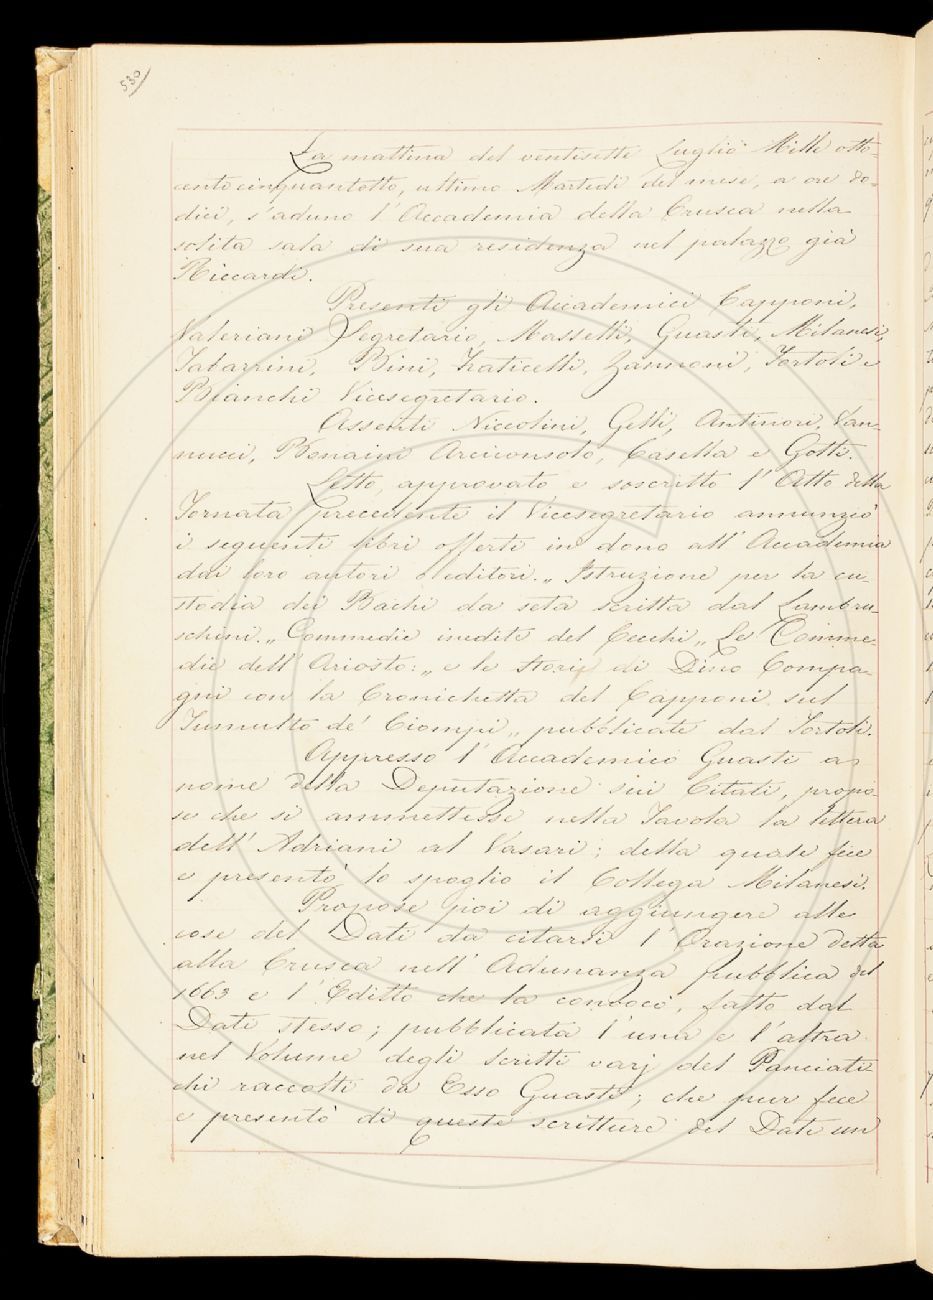 530
La mattina del ventisette Luglio Mille otto-
cento cinquantotto, ultimo Martedì del mese, a ore do-
dici, s'adunò l'Accademia della Crusca nella
solita sala di sua residenza nel palazzo già
Riccardi.
Presenti gli Accademici Capponi,
Valeriani Segretario, Masselli, Guasti, Milanesi,
Tabarrini, Bini, Fraticelli, Zannoni, Tortoli e
Bianchi Vicesegretario.
Assenti Niccolini, Gelli, Antinori, Van-
nucci, Bonaini Arciconsolo, Casella e Gotti.
Letto, approvato e soscritto l'Atto della
Tornata precedente il Vicesegretario annunziò
i seguenti libri offerti in dono all'Accademia
dai loro autori o editori. „ Istruzione per la cu-
stodia dei Bachi da seta scritta dal Lambru-
schini. „ Commedie inedite del Cecchi „ Le Comme-
die dell'Ariosto: „ e le Storie di Dino Compa-
gni con la Cronichetta del Capponi sul
Tumulto de' Ciompi „ pubblicate dal Tortoli.
Appresso l'Accademico Guasti a
nome della Deputazione sui Citati, propo-
se che si ammettesse nella Tavola la lettera
dell'Adriani al Vasari; della quale fece
e presentò lo spoglio il Collega Milanesi.
Propose poi di aggiungere alle
cose del Dati da citarsi l'Orazione detta
alla Crusca nell'Adunanza pubblica del
1663 e l'Editto che la convocò, fatto dal
Dati stesso; pubblicata l'una e l'altra
nel Volume degli Scritti varj del Panciati-
chi raccolti da Esso Guasti; che pur fece
e presentò di queste scritture del Dati un